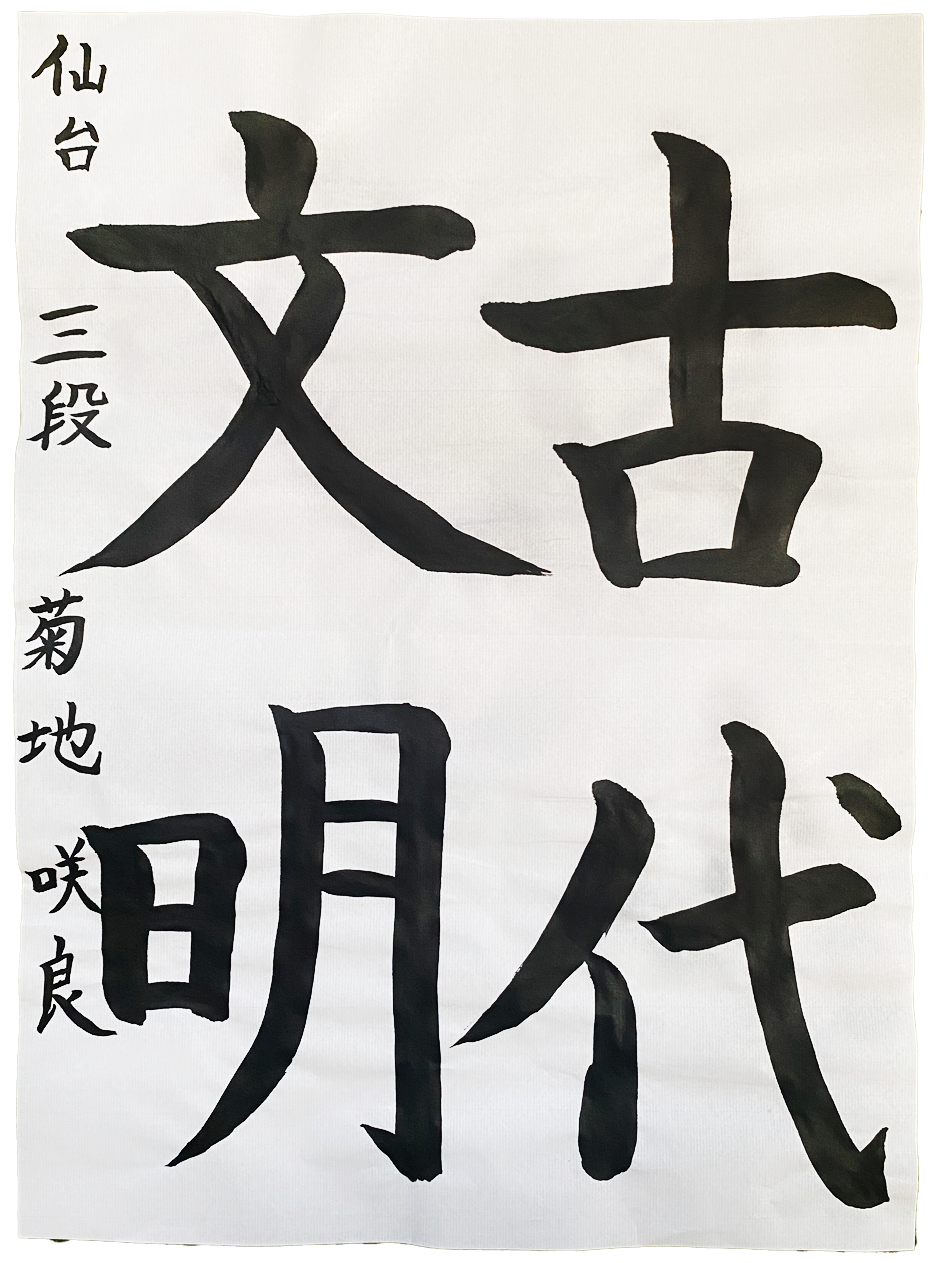 古代
文明
仙台 三段 菊地 咲良